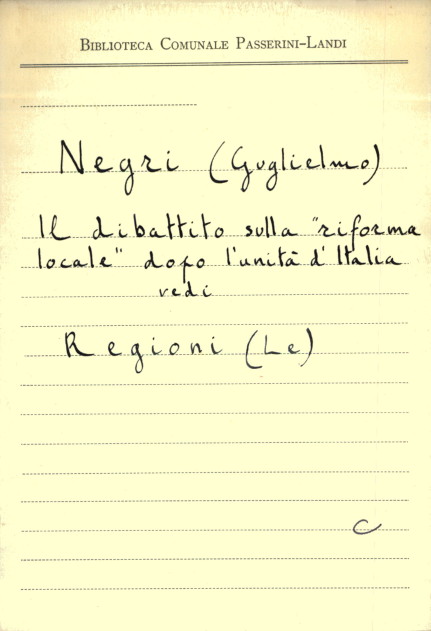 BIBLIOTECA COMUNALE PASSERINI-LANDI
Negri (Guglielmo)
Il dibattito sulla "riforma
locale" dopo l'unità d'Italia
vedi
Regioni (Le)
C